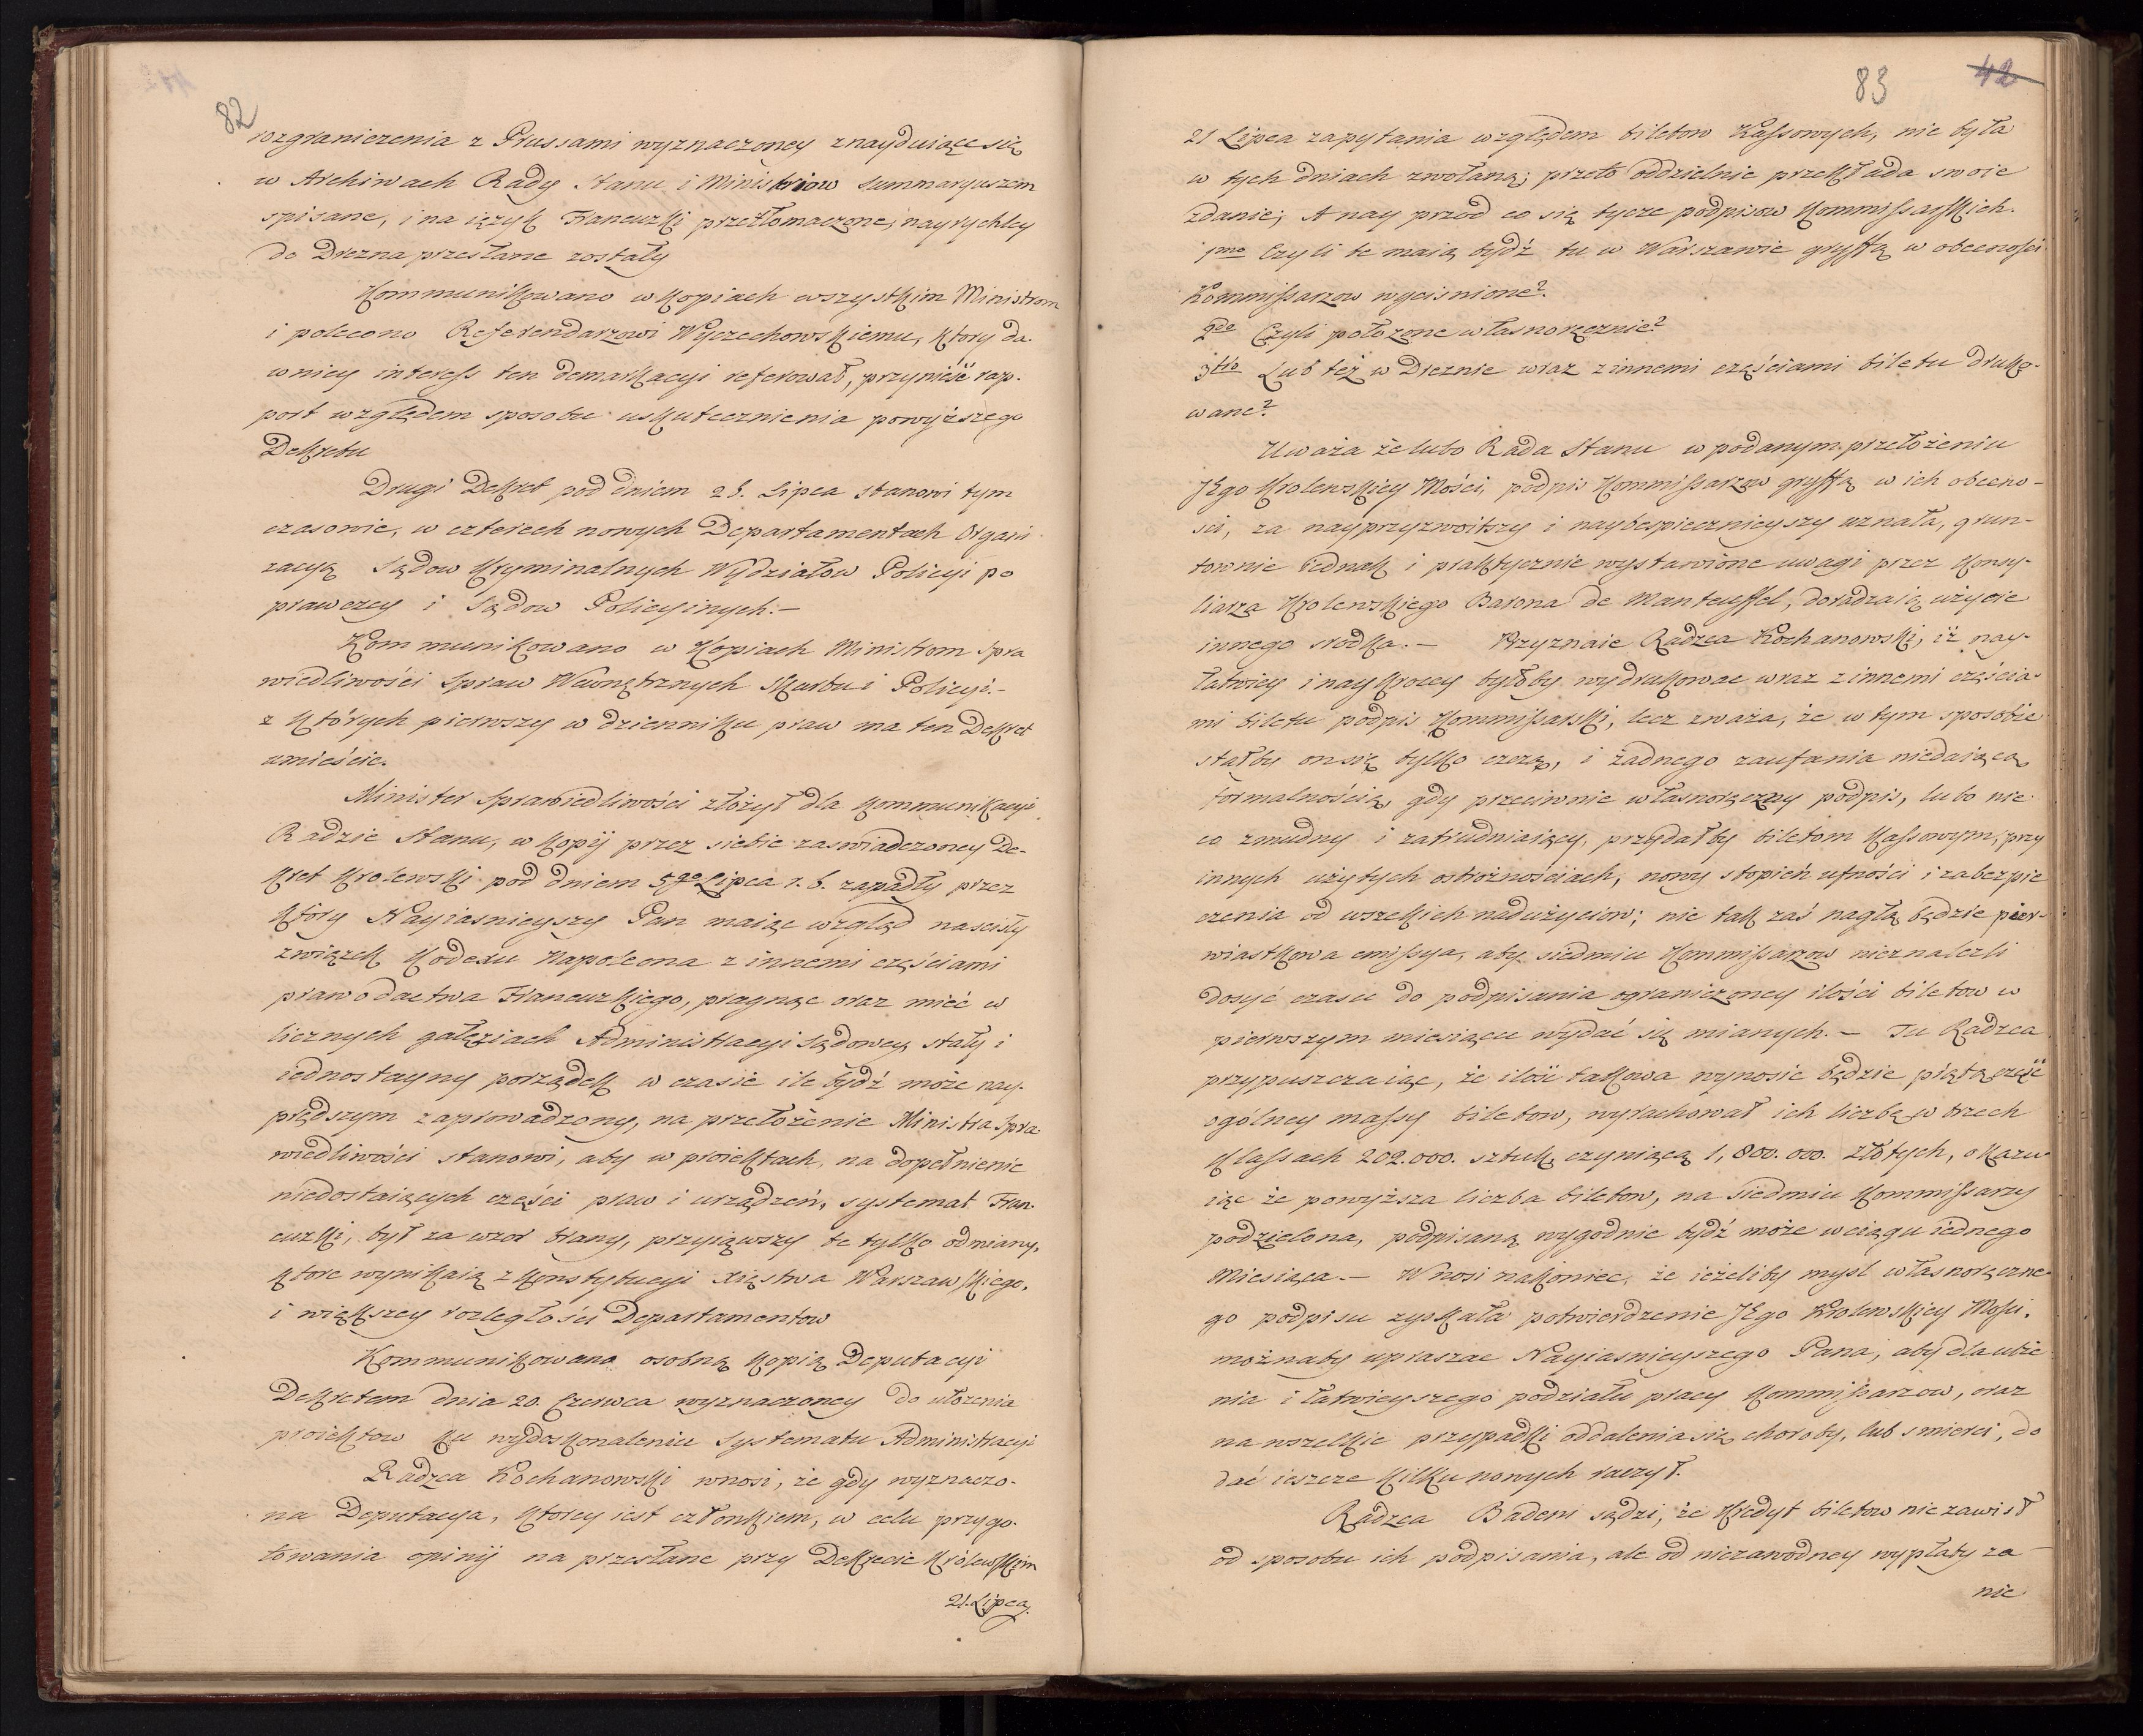 82
rozgraniczenia z Prussami wyznaczoney znayduiące się
w Archiwach Rady Stanu i Ministrow summaryuszem
spisane, i na ięzyk Francuzki przetłomaczone, nayrychley
do Drezna przesłane zostały
Kommunikowano w kopiach wszystkim Ministrom
i polecono Referendarzowi Wyczechowskiemu, ktory da-
wniey interess ten demarkacyi referował, przynieść rap-
port względem sposobu uskutecznienia powyższego
Dekretu
Drugi Dekret pod dniem 28. Lipca stanowi tym
czasowie, w czterech nowych Departamentach Organi
zacyą Sądow Kryminalnych Wydziałow Policyi po
prawczey i Sądow Policyinych.—
Kommunikowano w Kopiach Ministrom Spra
wiedliwości Spraw Wewnętrznych Skarbu i Policyi.-
z których pierwszy w dzienniku praw ma ten Dekret
umieścic.
Minister Sprawiedliwości złożył dla kommunikacyi
Radzie Stanu, w kopij przez siebie zaswiadczoney De-
kret Krolewski pod dniem 5go Lipca r. b. zapadły przez
który Nayiasnieyszy Pan maiąc wzgląd na scisły
związek Kodexu Napoleona z innemi częściami
prawodactwa Francuzkiego, pragnąc oraz mieć w
licznych gałęziach Administracyi Sądowey stały i
iednostayny porządek w czasie ile bydź może nay-
prędszym zaprowadzony, na przełożenie Ministra Spra
wiedliwości stanowi, aby w proiektach, na dopełnienie
niedostaiących części praw i urządzeń, systemat Fran-
cuzki, był za wzor brany, przyiąwszy te tylko odmiany,
ktore wynikaią z konstytucyi Xięstwa Warszawskiego,
i większey rozległości Departamentow
Kommunikowano osobną kopią Deputacyi
Dekretem dnia 20. Czerwca wyznaczoney do ułożenia
proiektow ku wydoskonaleniu Systematu Administracyi
Radzca Kochanowski wnosi, że gdy wyznaczo-
na Deputacya, ktorey iest członkiem, w celu przygo-
towania opinij na przesłane przy Dekrecie Królewskim
21. Lipca.
83 42
21 Lipca zapytania względem biletow Kassowych, nie była
w tych dniach zwołaną; przeto oddzielnie przekłada swoie
zdanie; A nay przod co się tycze podpisow Kommissarskich.
1mo Czyli te maią bydź tu w Warszawie gryffą w obecności
Kommissarzow wycisnione?
2do Czyli położone własnoręcznie?
3tio Lub też w Dreznie wraz z innemi częściami biletu druko-
wane?
Uważa że lubo Rada Stanu w podanym przełożeniu
JEgo Krolewskiey Mości, podpis Kommissarzow gryffą w ich obecno-
ści, za nayprzyzwoitszy i naybespiecznieyszy uznała, grun-
townie iednak i praktycznie wystawione uwagi przez Konsy-
liarza Krolewskiego Barona de Manteuffel, doradzaią użycie
innego srodka.— Przyznaie Radzca Kochanowski, iż nay-
łatwiey i naykrocey byłoby wydrukowac wraz z innemi częścia-
mi biletu podpis Kommissarski, lecz zważa, że w tym sposobie
stałby on się tylko czczą, i żadnego zaufania niedaiącą
formalnością gdy przeciwnie własnoręczny podpis, lubo nie
co zmudny i zatrudniaiący, przydałby biletom Kassowym, przy
innych użytych ostrożnościach, nowy stopień ufności i zabezpie
czenia od wszelkich nadużyciow; nie tak zaś nagłą będzie pier-
wiastkowa emissya, aby siedmiu Kommissarzow nieznalezli
dosyć czasu do podpisania ograniczoney ilości biletow w
pierwszym miesiącu wydać się mianych.— Tu Radzca
przypuszczaiąc, że ilość takowa wynosic będzie piątą część
ogólney massy biletow, wyrachował ich liczbę w trzech
Klassach 202.000. sztuk, czyniącą 1,800.000. Złotych, okazu
iąc że powyższa liczba biletow, na siedmiu Kommissarzy
podzielona, podpisaną wygodnie bydź może w ciągu iednego
Miesiąca.— Wnosi nakoniec, że ieżeliby mysl własnoręczne-
go podpisu zyskała potwierdzenie JEgo Krolewskiey Mości,
możnaby upraszac Nayiasnieyszego Pana, aby dla ulże
nia i łatwieyszego podziału pracy Kommissarzow, oraz
na wszelkie przypadki oddalenia się choroby, lub smierci, do
dać ieszcze kilku nowych raczył.
Radzca Badeni sądzi, że kredyt biletow nie zawisł
od sposobu ich podpisania, ale od niezawodney wypłaty za
nie